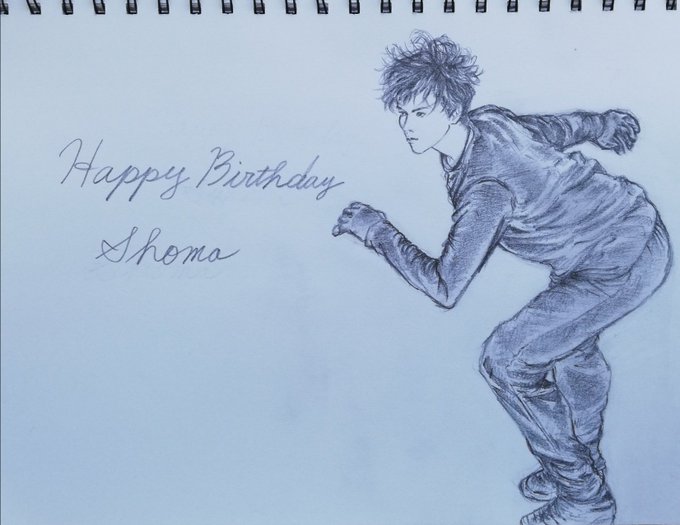 Happy Birthday
Shoma